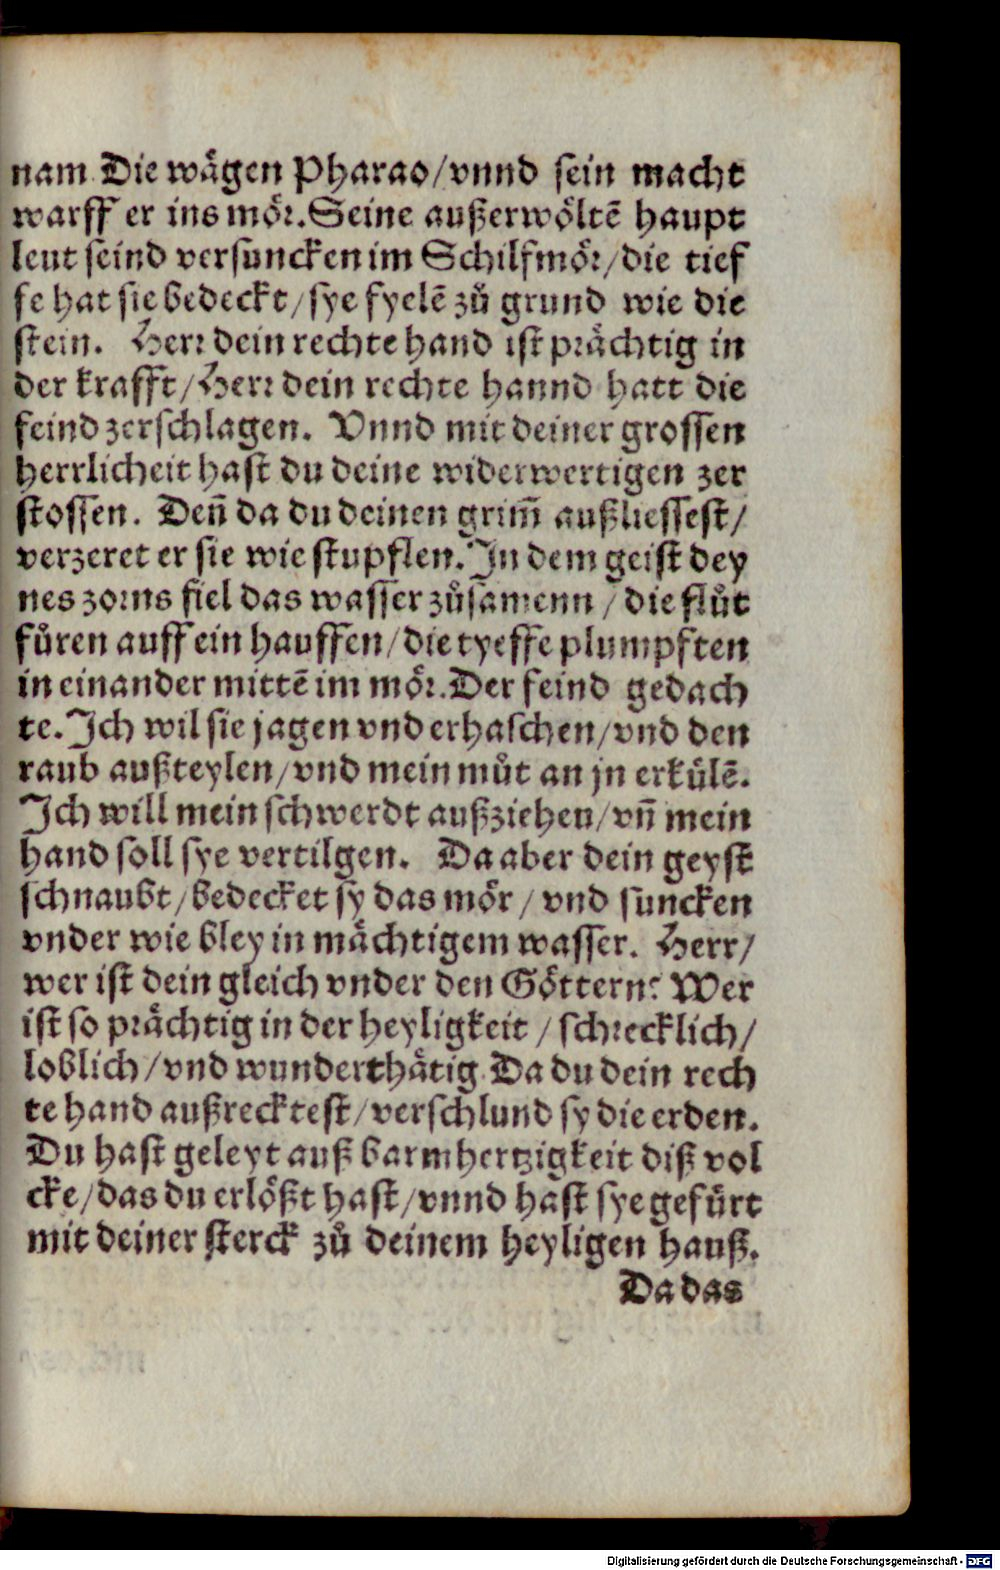 nam Die wågen Pharao/vnnd sein macht
warff er ins mör. Seine außerwöltē haupt
leut seind versuncken im Schilfmör/die tief
fe hat sie bedeckt/sye fyelē zů grund wie die
stein. Herr dein rechte hand ist prächtig in
der krafft/Herr dein rechte hannd hatt die
feind zerschlagen. Vnnd mit deiner grossen
herrlicheit hast du deine widerwertigen zer
stossen. Deñ da du deinen grim̃ außliessest/
verzeret er sie wie stupflen. In dem geist dey
nes zorns fiel das wasser zůsamenn/die flůt
fůren auff ein hauffen/die tyeffe plumpften
in einander mittē im mör. Der feind gedach
te. Ich wil sie jagen vnd erhaschen/vnd den
raub außteylen/vnd mein můt an jn erkülē.
Ich will mein schwerdt außziehen/vñ mein
hand soll sye vertilgen. Da aber dein geyst
schnaubt/bedecket sy das mör/vnd suncken
vnder wie bley in mächtigem wasser. Herr/
wer ist dein gleich vnder den Göttern? Wer
ist so prächtig in der heyligkeit/schrecklich/
loblich/vnd wunderthätig Da du dein rech
te hand außrecktest/verschlund sy die erden.
Du hast geleyt auß barmhertzigkeit diß vol
cke/das du erlößt hast/vnnd hast sye gefürt
mit deiner sterck zů deinem heyligen hauß.
Da das
Digitalisierung gefördert durch die Deutsche Forschungsgemeinschaft - DFG